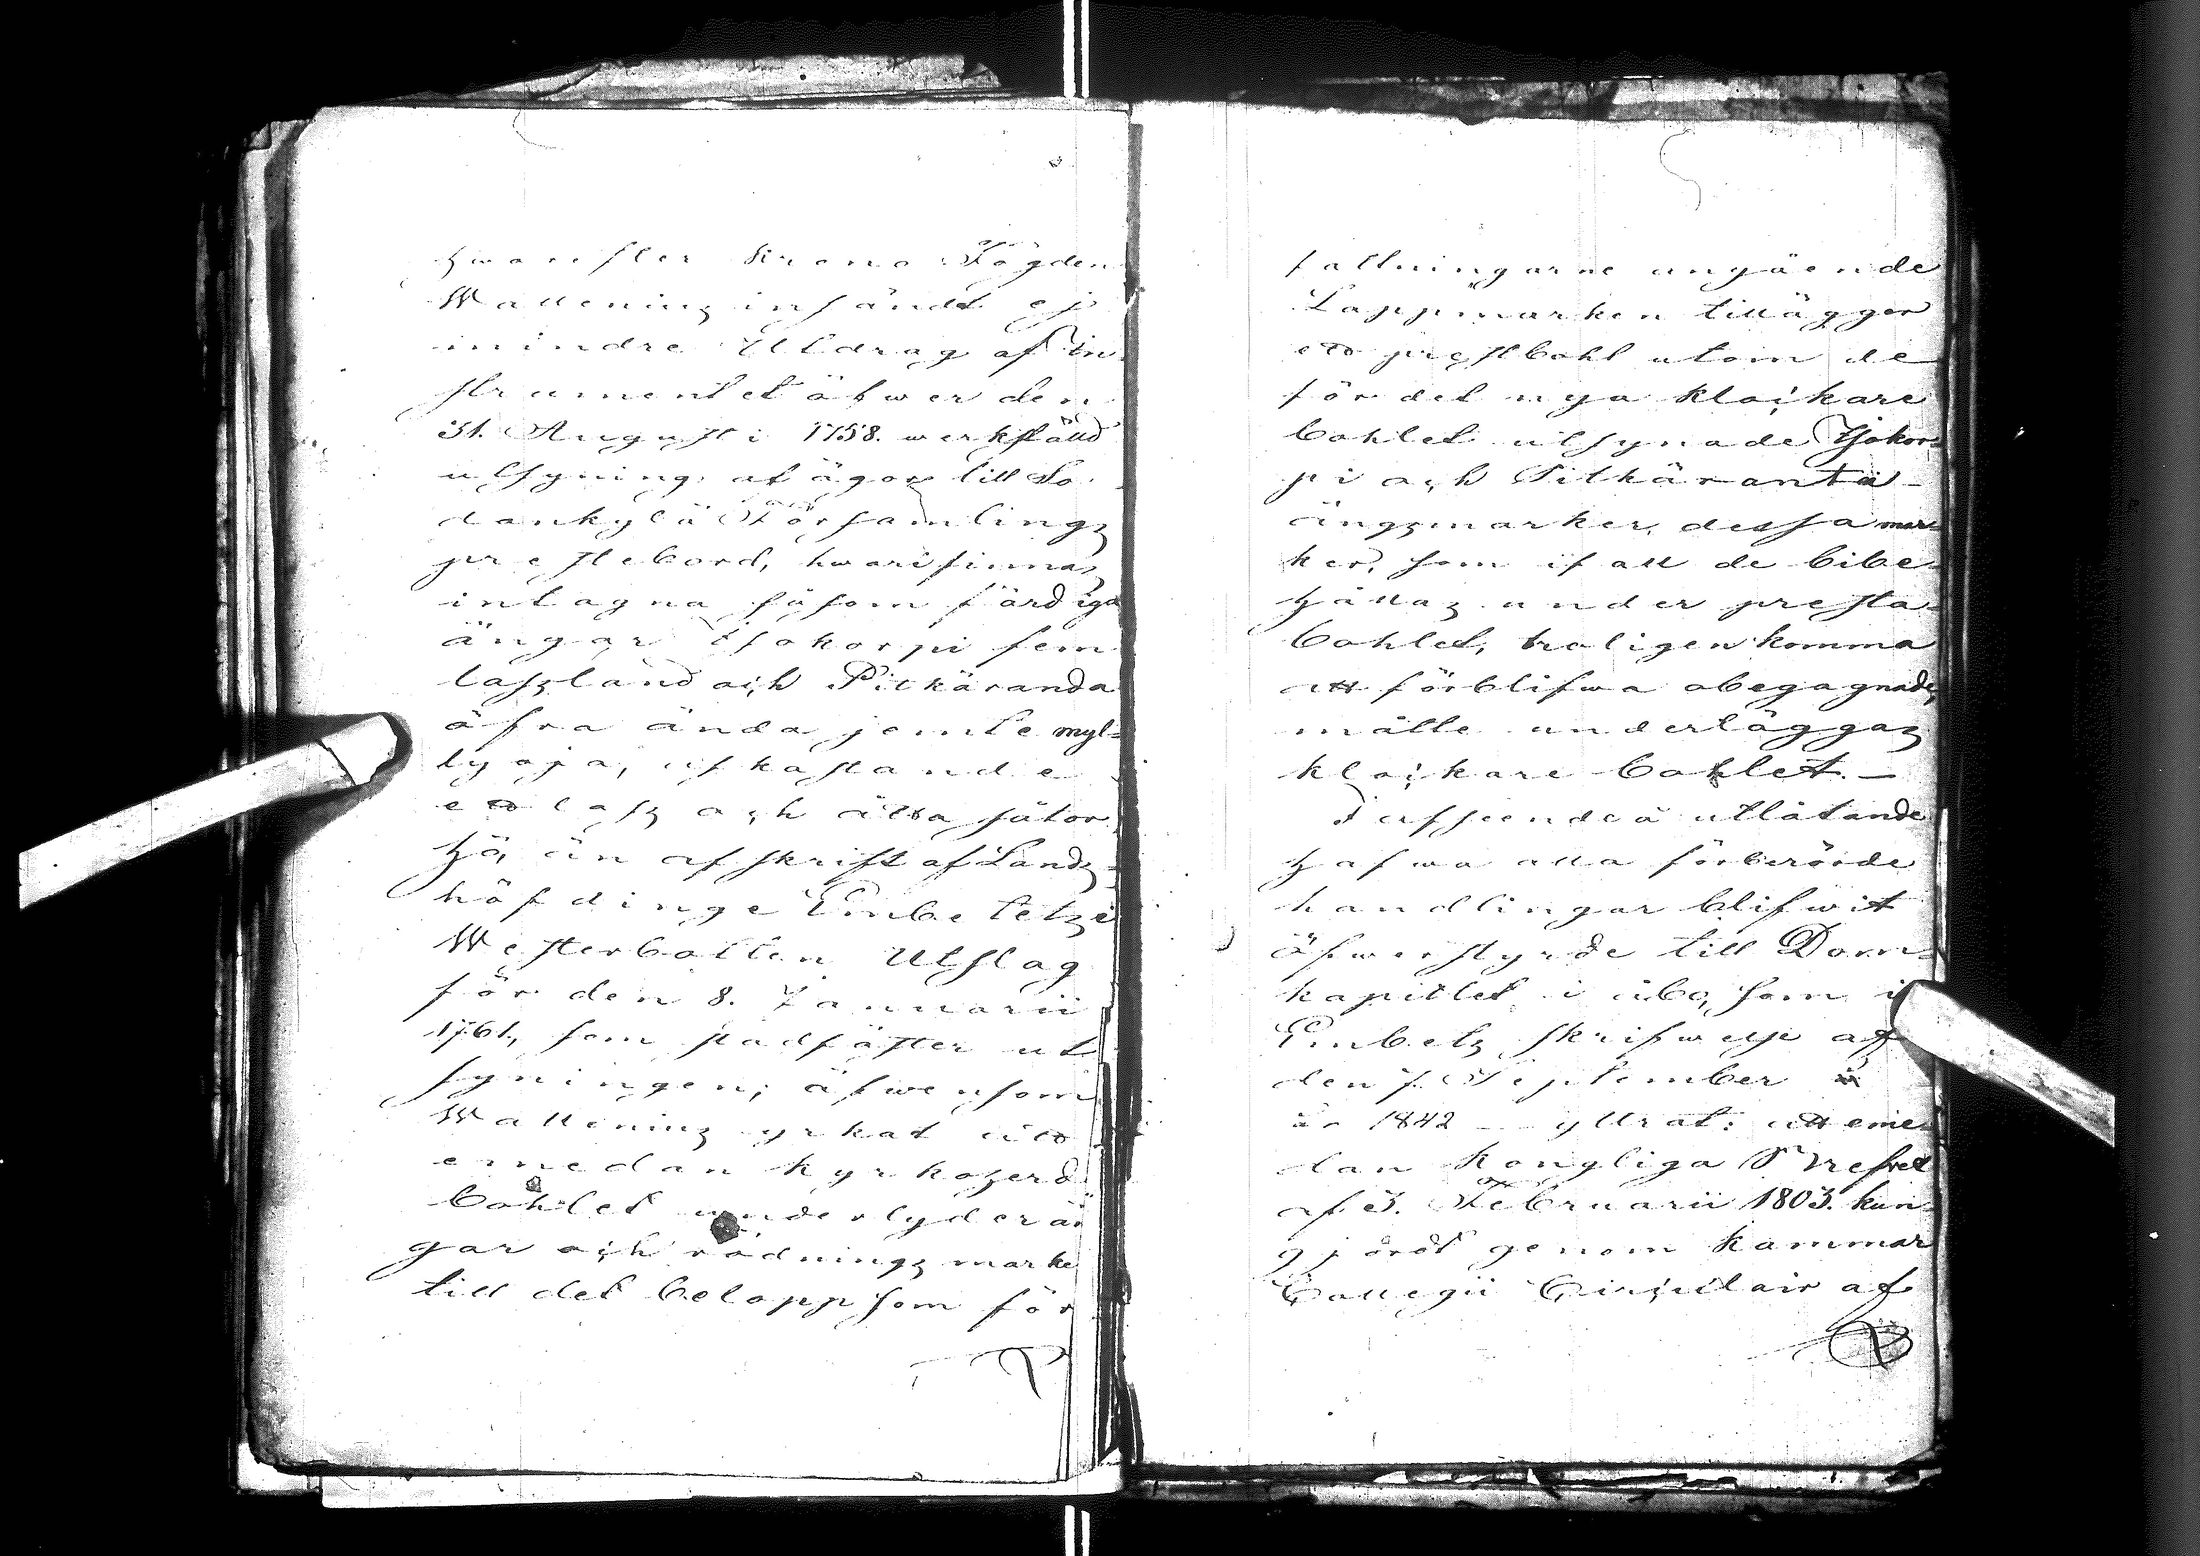 hwarefter Krono Fogden
Wallenius insändt ej
mindre Utdrag af In
strumentet öfwer den
31. Augusti 1758. werkstäld
utsyning af ägor till So-
dankylä Församlings
prestebord, hwari finnas
intagna såsom färdiga
ängar Isokorpi fem
lassland och Pitkäranda
öfra ända jemte myl-
lyoja, afkastande
ett lass och åtta såtor
hö, än afskrift af Lands-
höfdinge Embetets i
Westerbotten Utslag
för den 8. Januarii
1761., som stadfäster ut
syningen; äfwensom
Wallenius yrkat att
emedan kyrkoherde
bohlet underlyder än
gar och rödnings marker
till det belopp som för
fattningarne angående
Lappmarken tillägger
ett prestbohl utom de
för det nya klockare
bohlet utsynade Isokor-
pi och Pitkäranta
ängsmarker, dessa mar-
ker, som ifall de bibe-
hållas under presta-
bohlet, troligen komma
att förblifwa obegagnade,
måtte underläggas
klockare bohlet. –
I afseende å utlåtande
hafwa alla förberörde
handlingar blifwit
öfwerstyrde till Dom-
kapitlet i Åbo, som i
Embets skrifwelse af
den 7. September
år 1842 yttrat: att eme-
dan Kongliga Brefwet
af 3. Februarii 1803. kun-
gjordt genom Kammar
Collegii Circulair af